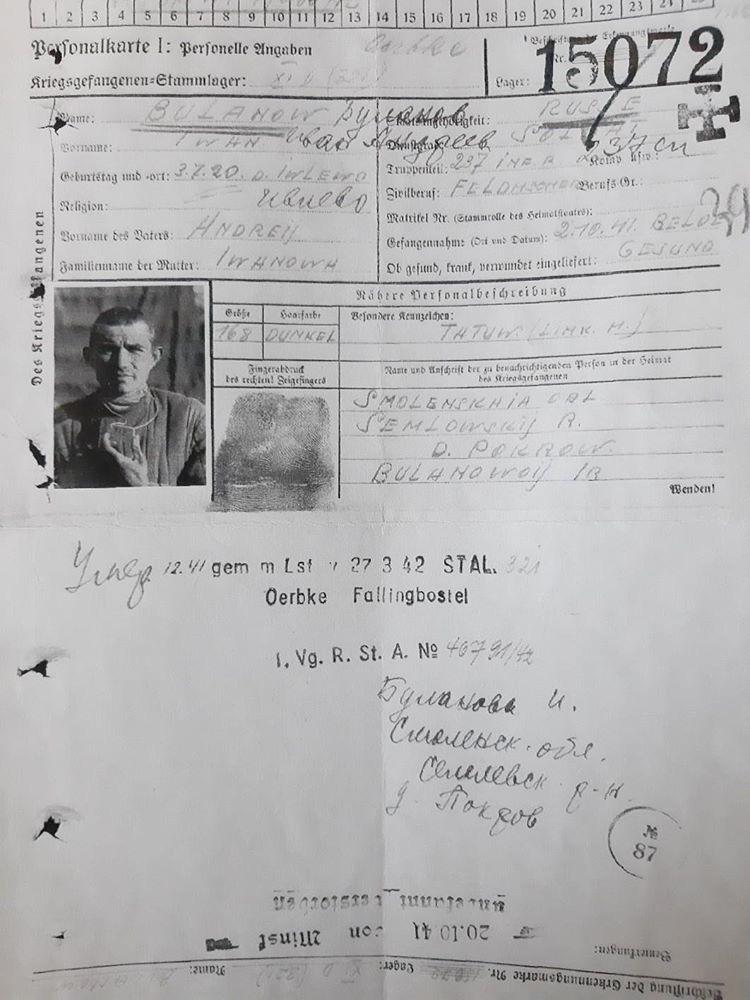 1 2 3 4 5 6 7 8 9 10 11 12 13 14 15 16 17 18 19 20 21 22 23 24
Personalkarte I: Personelle Angaben
Oerbke
Kriegsgefangenen-Stammlager: XI D (321)
Beschriftung der Erkennungsmarke
Nr. 15072
Lager:
Name: BULANOW Буланов
Vorname: IWAN Иван Андреев
Geburtstag und -ort: 3.7.20. D. IWLEWO
Ивлево
Religion:
Vorname des Vaters: ANDREIJ
Familienname der Mutter: IWANOWA
Staatsangehörigkeit: RUSSE
Dienstgrad: SOLDAT
Truppenteil: 237 INF. R Komp. usw.:
Zivilberuf: FELDSCHER Berufs-Gr.:
Matrikel Nr. (Stammrolle des Heimatstaates):
Gefangennahme (Ort und Datum): 2.10.41. BELOE
Ob gesund, krank, verwundet eingeliefert: GESUND
39
Des Kriegsgefangenen
Nähere Personalbeschreibung
Größe Haarfarbe Besondere Kennzeichen:
168 DUNKEL TATUW. (LINK. H.)
Fingerabdruck
des rechten! Zeigefingers
Name und Anschrift der zu benachrichtigenden Person in der Heimat
des Kriegsgefangenen
SMOLENSKAIA OBL
SEMLOWSKIJ R.
D. POKROW.
BULANOWOIJ IR
Wenden!
Умер 12.41 gem m Lst v 27 3 42 STAL. 321
Oerbke Fallingbostel
I. Vg. R. St. A. № 40791/42
Буланова И.
Смоленск. обл.
Семлевск р-н.
д. Покров
№
87
unbekannt verstorben
20.10 41 von Minsk
Bemerkungen:
Beschriftung der Erkennungsmarke Nr. Lager: XI D (321) Name: